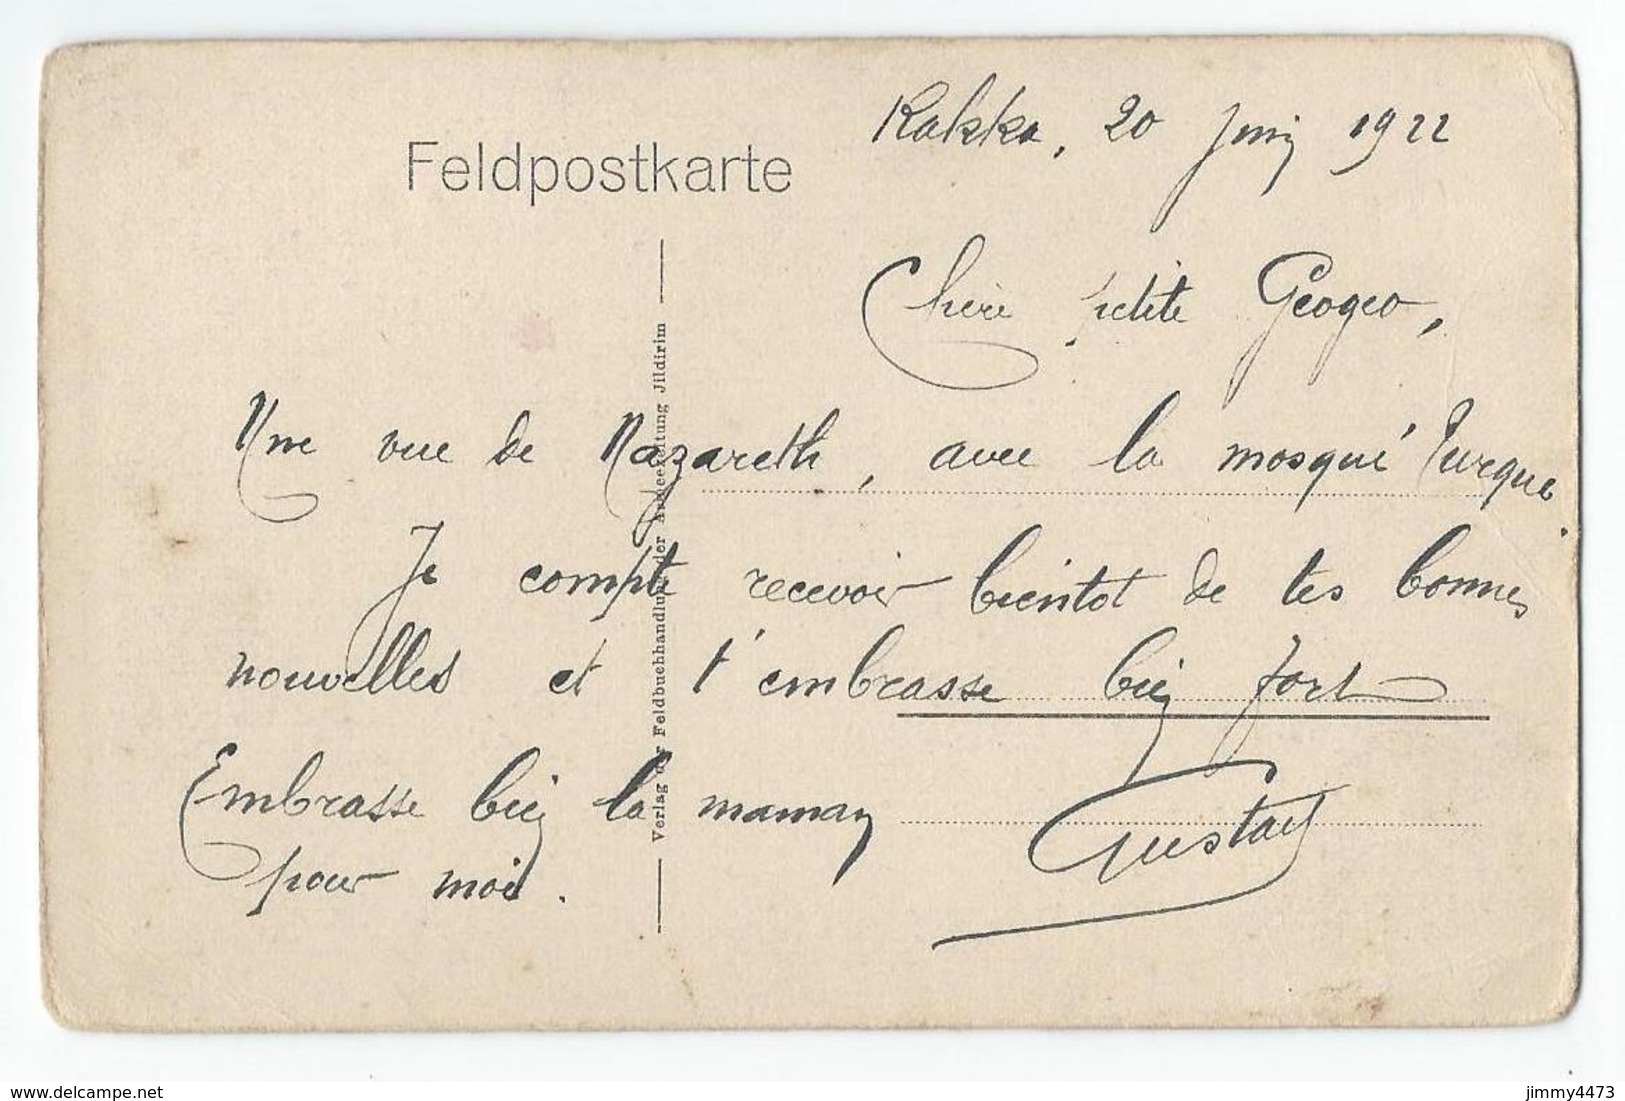 Feldpostkarte
Rakka, 20 Juin 1922
Chère petite Geogeo,
Une vue de Nazareth, avec la mosqué Turque.
Je compte recevoir bientot de tes bonnes
nouvelles et t'embrasse bien fort
Embrasse bien la maman
pour moi.
Gustave
Verlag der Feldbuchhandlung der Armeeleitung Jildirim
www.delcampe.net
jimmy4473